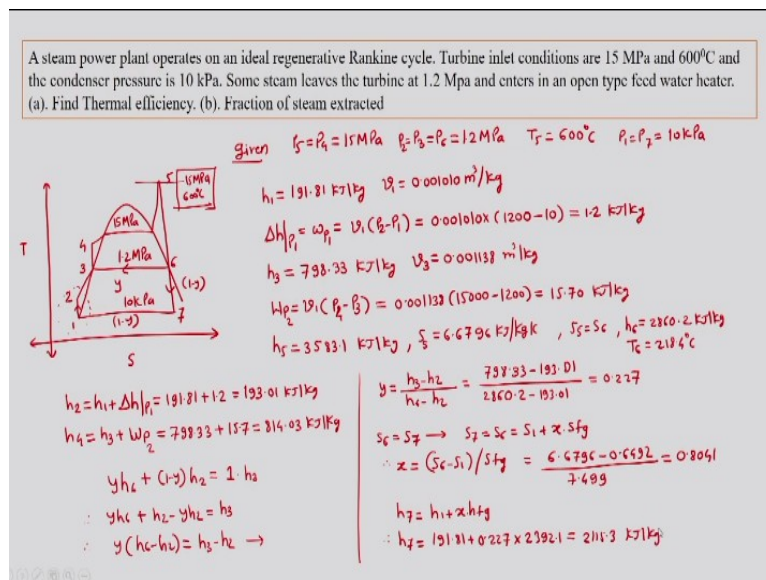 A steam power plant operates on an ideal regenerative Rankine cycle. Turbine inlet conditions are 15 MPa and 600⁰C and
the condenser pressure is 10 kPa. Some steam leaves the turbine at 1.2 Mpa and enters in an open type feed water heater.
(a). Find Thermal efficiency. (b). Fraction of steam extracted
given P₅=P₄=15MPa P₂=P₃=P₆=1.2MPa T₅=600°C P₁=P₇=10kPa
h₁=191.81 kJ/kg v₁=0.001010 m³/kg
Δh|p₁=wp₁=v₁(P₂-P₁)=0.001010x(1200-10)=1.2 kJ/kg
h₃=798.33 kJ/kg v₃=0.001138 m³/kg
Wp₂=v₁(P₄-P₃)=0.001138(15000-1200)=15.70 kJ/kg
h₅=3583.1 kJ/kg, s₅=6.6796 kJ/kgk, s₅=s₆, h₆=2860.2 kJ/kg
T₆=218.4°C
T
S
5
15MPa
600°C
15MPa
4
3
1.2MPa
6
y
(1-y)
2
10kPa
1
(1-y)
7
h₂=h₁+Δh|p₁=191.81+1.2=193.01 kJ/kg
h₄=h₃+Wp₂=798.33+15.7=814.03 kJ/kg
yh₆+(1-y)h₂=1.h₃
∴ yh₆+h₂-yh₂=h₃
∴ y(h₆-h₂)=h₃-h₂ →
y=(h₃-h₂)/(h₆-h₂)=(798.33-193.01)/(2860.2-193.01)=0.227
s₆=s₇ → s₇=s₆=s₁+x.sfg
∴ x=(s₆-s₁)/sfg=(6.6796-0.6492)/7.499=0.8041
h₇=h₁+x.hfg
∴ h₇=191.81+0.227x2392.1=2115.3 kJ/kg